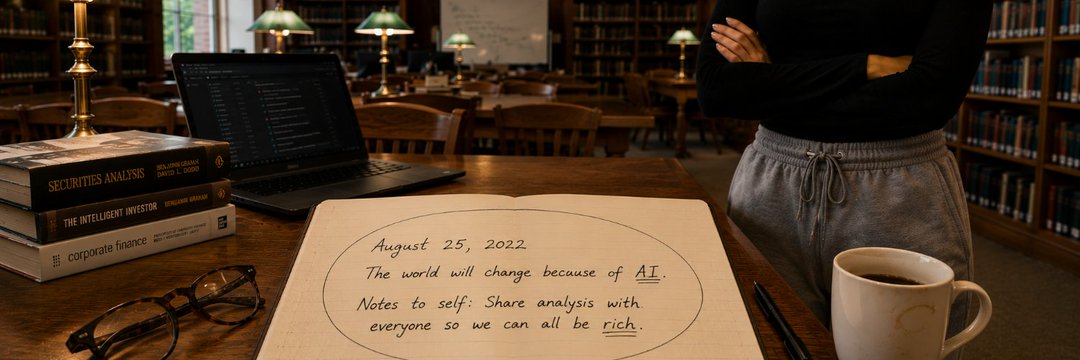 SECURITIES ANALYSIS
BENJAMIN GRAHAM
DAVID L. DODD
THE INTELLIGENT INVESTOR
BENJAMIN GRAHAM
corporate finance
August 25, 2022
The world will change becuuse of AI.
Notes to self: Share analysis with.
everyone so we can all be rich.